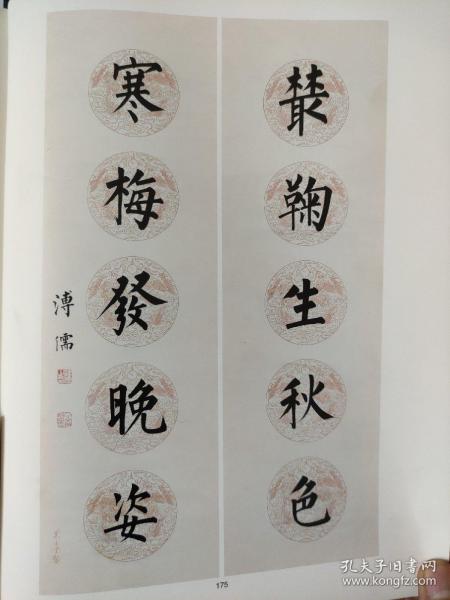 叢鞠生秋色
寒梅發晚姿
溥儒
175
孔夫子旧书网
www.kongfz.com